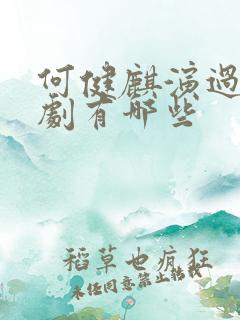 何健麒演過
劇有哪些
稻草也瘋狂
未经同意禁止转载